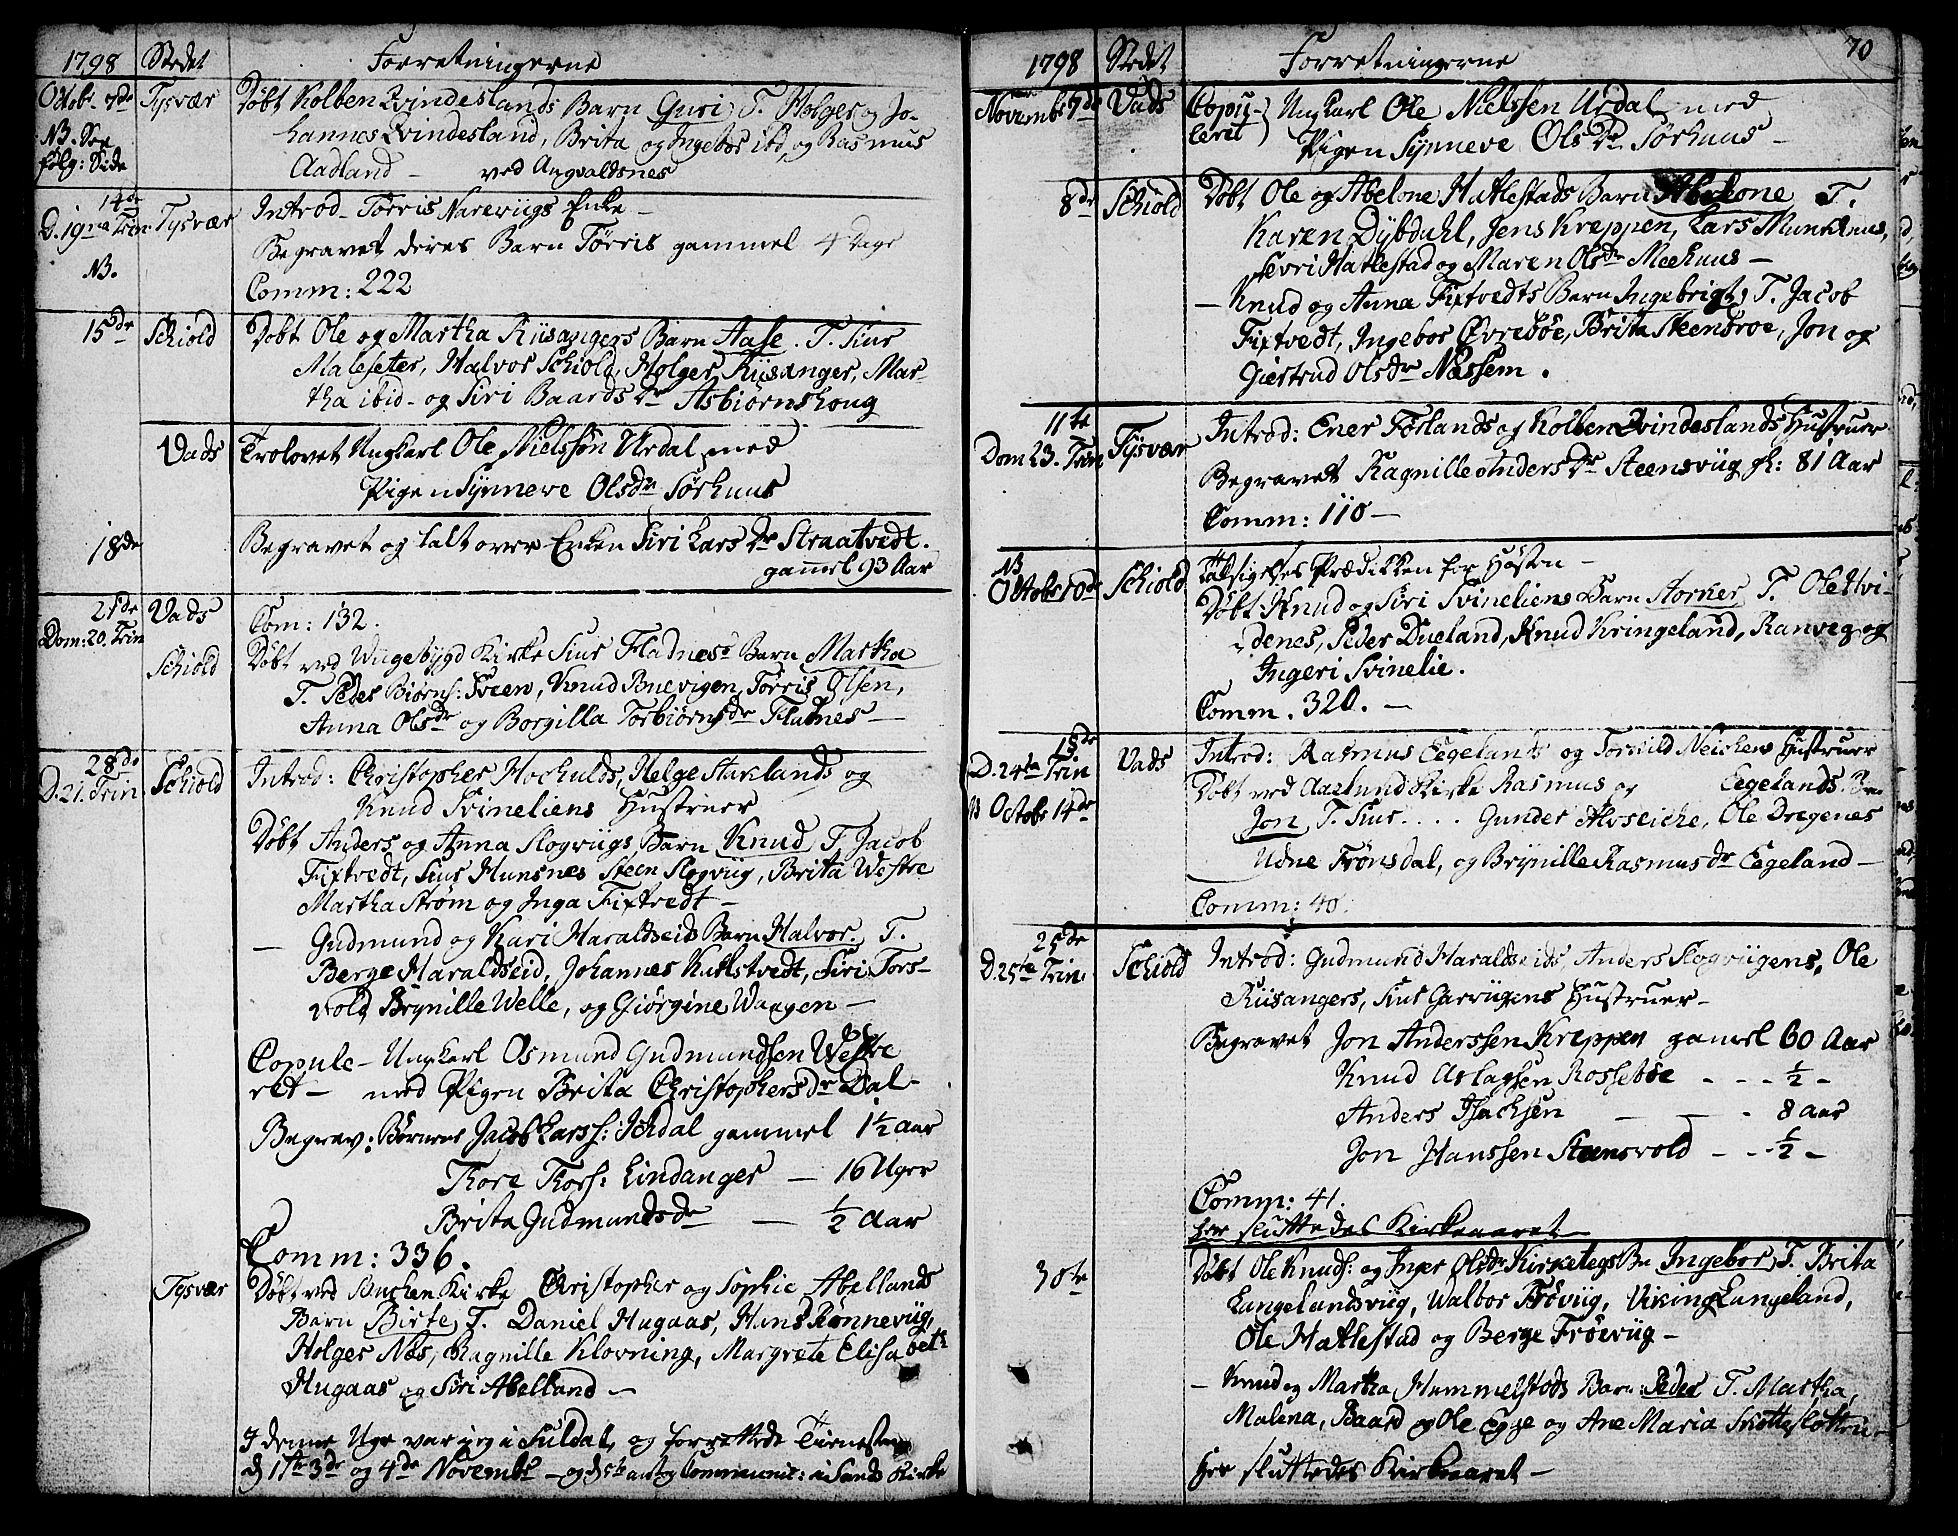 1798 Stedet Forretningerne
Octob. 7de Tysvær Døbt Kolben Qvindeslands Barn Guri, T. Holger og Jo-
NB. See hannes Qvindesland, Brita og Ingebor ibd, og Rasmus
følg: Side Aadland — ved Augvaldsnes
14de
D. 19na Trin. Tysvær Introd— Tørris Narevigs Enke —
Begravet deres Barn Tørris gammel 4 Dage
NB.
Comm: 222
15de Schiold Døbt Ole og Martha Riisangers Barn Aase. T. Siur
Maleseter, Halvor Schiold, Holger Riisanger, Mar-
tha ibid— og Siri Baards Dr Asbiørnshoug
Vads Trolovet Ungkarl Ole Nielssøn Urdal med
Pigen Synneve Olsdr Sørhuus
18de Begravet og talt over Enken Siri Lars Dr Straatvedt.
gammel 93 Aar
21de Vads Com: 132.
Dom: 20. Trin
Schiold Døbt ved Wiigebygd Kirke Siur Fladnes's Barn Martha
T. Peder Biørns: Sveen, Knud Buevigen, Tørris Olsen,
Anna Olsdr og Borgilla Torbiørnsdr Fladnes —
28de Schiold Introd: Christopher Hochulds, Helge Staklands og
D. 21. Trin Knud Svineliens Hustruer
Døbt Anders og Anna Slogviigs Barn Knud, T. Jacob
Fixtvedt, Siur Hunsnes Steen Slogviig, Brita Westre
Martha Strøm og Inga Fixtvedt —
— Gudmund og Kari Haraldseids Barn Halvor. T.
Berge Haraldseid, Johannes Kallstvedt, Siri Tors-
vold, Brynille Welle, og Giørgine Waagen —
Copule— Ungkarl Osmund Gudmundsen Westre
ret — med Pigen Brita Christophersdr Dal.
Begrav: Børnene Jacob Larss: Ichdal gammel 1½ Aar
Thore Thors: Lindanger — 16 Uger
Brita Gudmundsdr — ½ Aar
Comm: 336.
Tysvær Døbt ved Buchen Kirke Christopher og Sophie Abellands
Barn Birte, T. Daniel Hugaas, Hans Rønneviig,
Holger Nes, Ragnille Klovning, Margrete Elisabeth
Hugaas og Siri Abelland —
I denne Uge var jeg i Suldal, og forrettede Tienesten
d. 1te 3de og 4de Novembr — og d. 5te communic: i Sands Kirke
70
1798 Stedet Forretningerne
Novemb. 7de Vads Copu- Ungkarl Ole Nielssen Urdal med
leret Pigen Synneve Olsdr Sørhuus —
8de Schiold Døbt Ole og Abelone Hatlestads Barn Abelone T.
Karen Dybdahl, Jens Kreppen, Lars Munkhuus,
Sevri Hatlestad og Maren Olsdr Meehuus —
— Knud og Anna Fixtvedts Barn Ingebrigt, T. Jacob
Fixtvedt, Ingebor Øvrebøe, Brita Steenbroe, Jon og
Giertrud Olsdr Nässem.
11te
Dom 23. Trin Tysvær Introd: Ener Førlands og Kolben Qvindeslands Hustruer
Begravet Ragnille Anders Dr Steensviig gl: 81 Aar
Comm: 110 —
NB
Octobr 10de Schiold Taksigelses Prædikken for Høsten —
Døbt Knud og Siri Svineliens Barn Aorner T. Ole Hvi-
denes, Peder Dueland, Knud Kringeland, Ranveg og
Ingeri Svinelie.
Comm. 320. —
18de
D. 24ta Trin Vads Introd: Rasmus Eegelands og Torkild Neichens Hustruer
NB Octobr 14de Døbt ved Aarlund Kirke Rasmus og Eegelands Bn
Jon, T. Siur . . . . Gunder Alvseiche, Ole Dregenes
Udne Frønsdal, og Brynille Rasmusdr Eegeland —
Comm: 40.
25de
D. 25ta Trin. Schiold Introd: Gudmund Haraldseids, Anders Slogviigens, Ole
Riisangers, Siur Garviigens Hustruer —
Begravet Jon Anderssen Kreppen gamel 60 Aar
Knud Aslagsen Rossebøe - - - ½ -
Anders Isachsen — — - 8 Aar
Jon Hanssen Steensvold - - - ½ -
Comm: 41.
her sluttedes Kirkeaaret —
30te Døbt Ole Knuds: og Inger Olsdr Kirketeigs Bn Ingebor, T. Brita
Langelandsviig, Walbor Frøviig, Viking Langeland,
Ole Hatlestad og Berge Frøeviig —
— Knud og Martha Hummelstods Barn: Peder T. Martha,
Malena, Baard og Ole Egge og Ane Maria
her sluttedes Kirkeaaret —